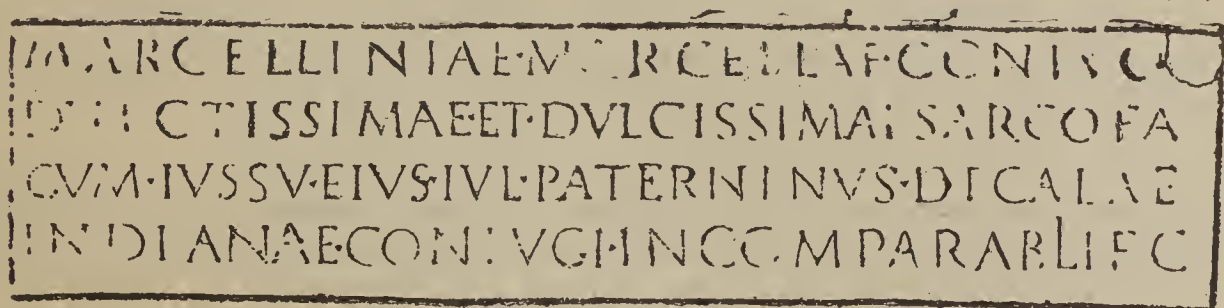 MARCELLINIAE·MARCELLAE·CONIVG
DILECTISSIMAE·ET·DVLCISSIMAE SARCOFA
CVM·IVSSV·EIVS·IVL·PATERNINVS·D CALAE
INDIANAE·CONIVGI·INCOMPARABLI F C